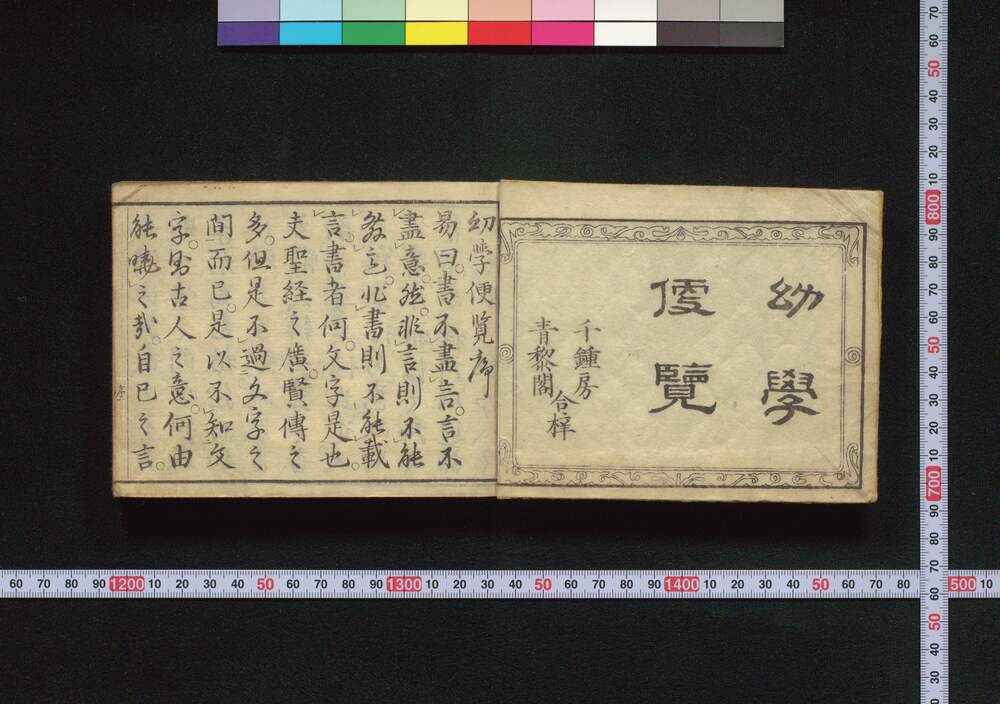 幼學
便覽
千鍾房
青黎閣
合梓
幼學便覧序
易曰。書不盡言。言不
盡意。然非言則不能
發意。非書則不能載
言。書者何。文字是也。
夫聖経之廣。賢傳之
多。但是不過文字之
間而已。是以不知文
字。則古人之意。何由
能曉之哉。自已之言。
60 70 80 90 1200 10 20 30 40 50 60 70 80 90 1300 10 20 30 40 50 60 70 80 90 1400 10 20 30 40 50 60 70 80 500 10
70 60 50 40 30 20 10 800 90 80 70 60 50 40 30 20 10 700 90 80 70 60 50 40 30 20